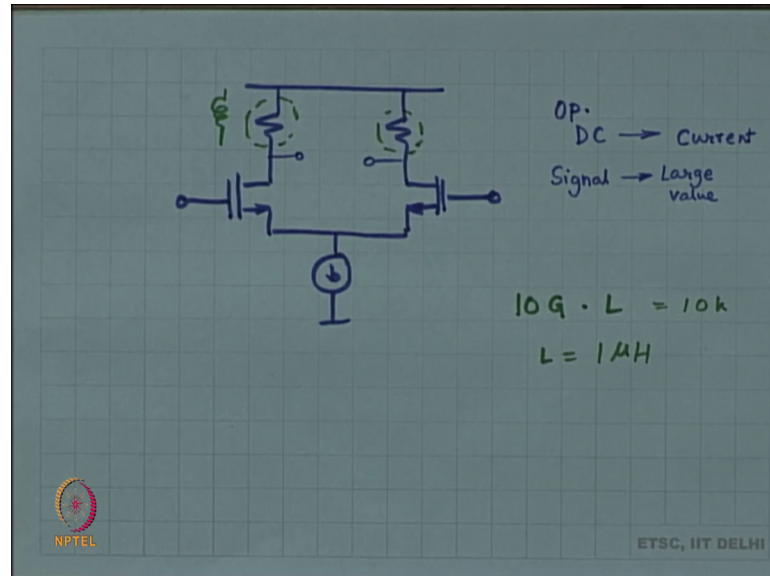 OP.
DC → Current
Signal → Large
value
10G · L = 10k
L = 1 μH
NPTEL
ETSC, IIT DELHI